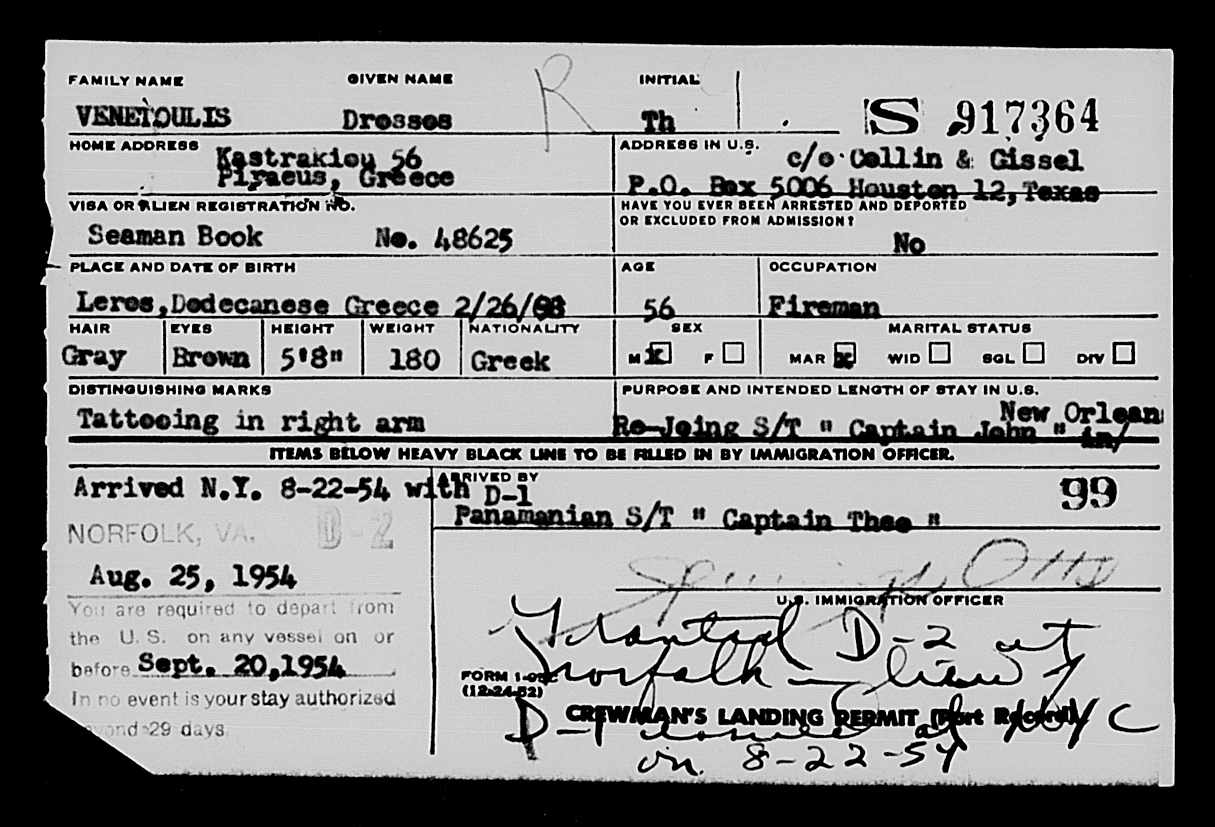 FAMILY NAME GIVEN NAME R INITIAL
VENETOULIS Drossos Th S 917364
HOME ADDRESS Kastrakiou 56
Piraeus, Greece
ADDRESS IN U.S. c/o Collin & Gissel
P.O. Box 5006 Houston 12, Texas
VISA OR ALIEN REGISTRATION NO.
Seaman Book No. 48625
HAVE YOU EVER BEEN ARRESTED AND DEPORTED
OR EXCLUDED FROM ADMISSION?
No
PLACE AND DATE OF BIRTH AGE OCCUPATION
Leros, Dodecanese Greece 2/26/98 56 Fireman
HAIR EYES HEIGHT WEIGHT NATIONALITY SEX MARITAL STATUS
Gray Brown 5'8" 180 Greek M x F MAR x WID SGL DIV
DISTINGUISHING MARKS
Tattooing in right arm
PURPOSE AND INTENDED LENGTH OF STAY IN U.S.
New Orlean
Re-Joing S/T " Captain John " in/
ITEMS BELOW HEAVY BLACK LINE TO BE FILLED IN BY IMMIGRATION OFFICER.
Arrived N.Y. 8-22-54 with D-1
ARRIVED BY 99
Panamanian S/T " Captain Theo "
NORFOLK, VA. D-2
Aug. 25, 1954
You are required to depart from
the U.S. on any vessel on or
before Sept. 20,1954
In no event is your stay authorized
beyond 29 days.
Otto
U.S. IMMIGRATION OFFICER
Granted D-2 at
Norfolk in lieu of
D-1 issued at NYC
on 8-22-54
FORM I-95C
(12-24-52)
CREWMAN'S LANDING PERMIT (Port Record)